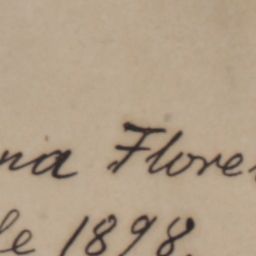 na Flore
le 1898.